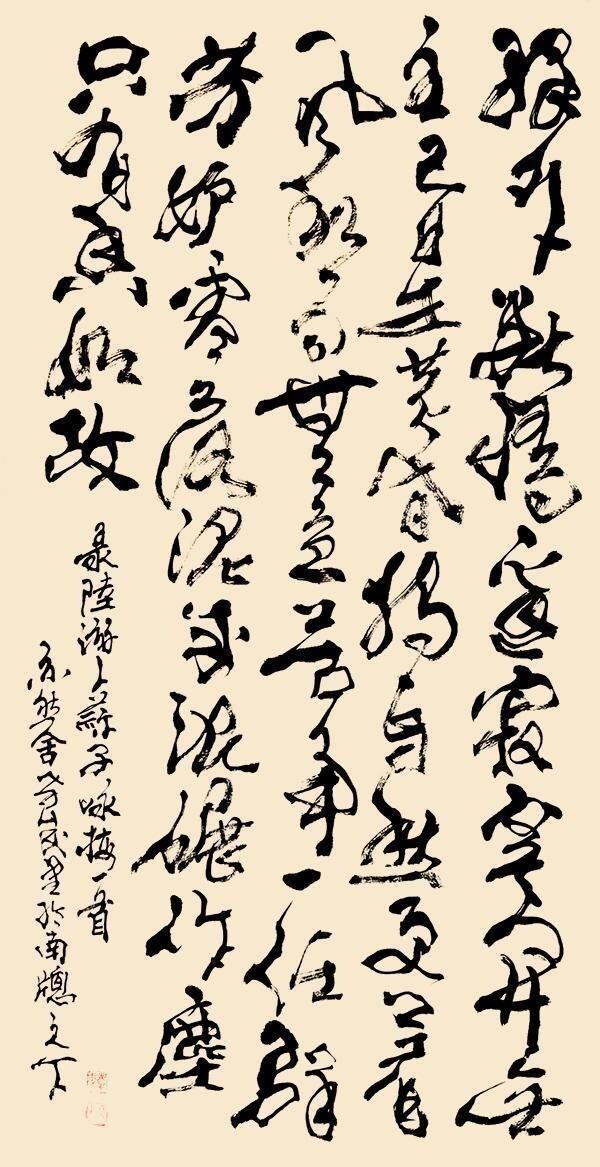 驛外斷橋邊寂寞開無
主已是黄昏獨自愁更著
風和雨無意苦争春一任群
芳妒零落泥成泥碾作塵
只有香如故
录陸游卜算子咏梅一首
於南牕之下